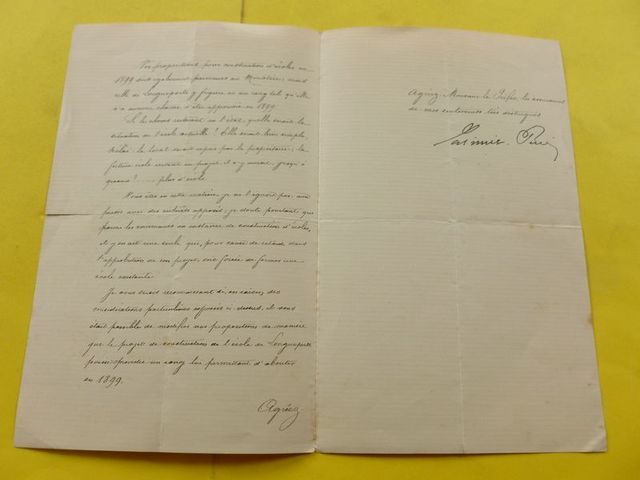 Vos propositions pour construction d'écoles en
1899 sont également parvenues au Ministère; mais
celle de Longueperte y figure en un rang tel qu'elle
n'a aucune chance d'être approuvée en 1899.
Si les choses restaient en l'état, quelle serait la
situation de l'école actuelle? Elle serait bien simple,
hélas: le local serait repris par le propriétaire; la
future école restant en projet, il n'y aurait, jusqu'à
quand? ...... plus d'école.
Vous êtes en cette matière, je ne l'ignore pas, aux
prises avec des intérêts opposés; je doute pourtant que
parmi les communes en instance de construction d'écoles,
il y en ait une seule qui, pour cause de retard dans
l'approbation de son projet, soit forcée de fermer une
école existante.
Je vous serais reconnaissant si, en raison des
considérations particulières exposées ci-dessus, il vous
était possible de modifier vos propositions de manière
que le projet de construction de l'école de Longueperte
puisse prendre un rang lui permettant d'aboutir
en 1899.
Agréez
Agréez, Monsieur le Préfet, les assurances
de mes sentiments très distingués
Casimir-Perier